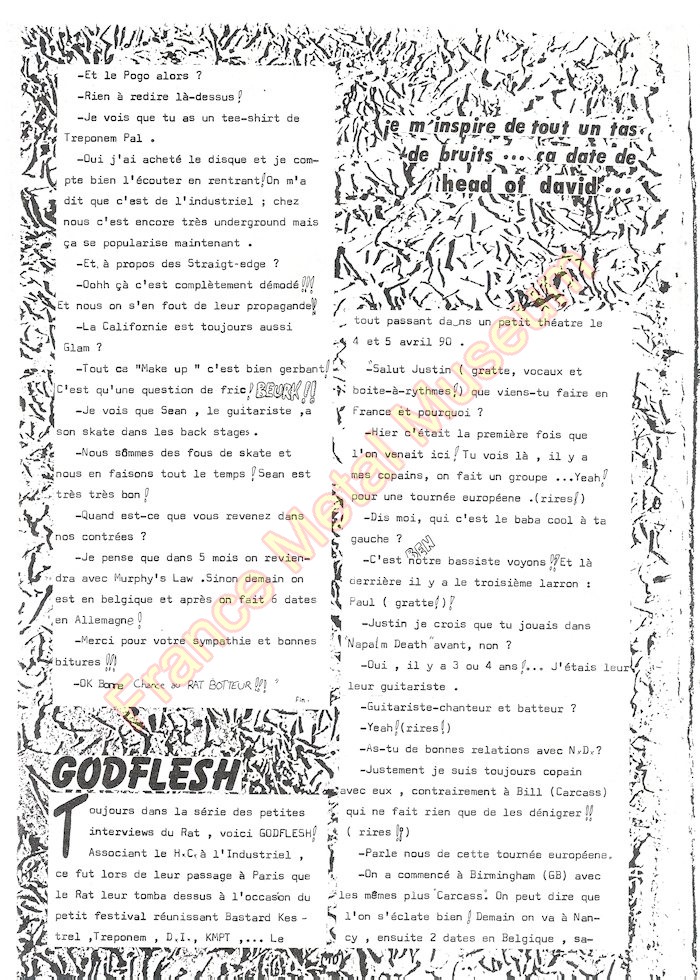 -Et le Pogo alors ?
-Rien à redire là-dessus!
-Je vois que tu as un tee-shirt de
Treponem Pal .
-Oui j'ai acheté le disque et je com-
pte bien l'écouter en rentrant!On m'a
dit que c'est de l'industriel ; chez
nous c'est encore très underground mais
ça se popularise maintenant .
-Et à propos des Straigt-edge ?
-Oohh çà c'est complètement démodé!!!
Et nous on s'en fout de leur propagande!!
-La Californie est toujours aussi
Glam ?
-Tout ce "Make up " c'est bien gerbant!
C'est qu'une question de fric! BEURK!!
-Je vois que Sean , le guitariste ,a
son skate dans les back stages.
-Nous sômmes des fous de skate et
nous en faisons tout le temps!Sean est
très très bon!
-Quand est-ce que vous revenez dans
nos contrées ?
-Je pense que dans 5 mois on revien-
dra avec Murphy's Law .Sinon demain on
est en belgique et après on fait 6 dates
en Allemagne!
-Merci pour votre sympathie et bonnes
bitures!!!
-OK Bonne Chance au RAT BOTTEUR!!! "
Fin.
GODFLESH
Toujours dans la série des petites
interviews du Rat , voici GODFLESH!
Associant le H.C. à l'Industriel ,
ce fut lors de leur passage à Paris que
le Rat leur tomba dessus à l'occasion du
petit festival réunissant Bastard Kes -
trel ,Treponem , D.I., KMPT ,... Le
je m'inspire de tout un tas
de bruits ... ça date de
head of david ...
tout passant da_ns un petit théatre le
4 et 5 avril 90 .
"Salut Justin ( gratte, vocaux et
boite-à-rythmes!) que viens-tu faire en
France et pourquoi ?
-Hier c'était la première fois que
l'on venait ici! Tu vois là , il y a
mes copains, on fait un groupe ...Yeah!
pour une tournée européene .(rires!)
-Dis moi, qui c'est le baba cool à ta
gauche ?
-C'est BEN notre bassiste voyons!!Et là
derrière il y a le troisième larron :
Paul ( gratte!)!
-Justin je crois que tu jouais dans
"Napalm Death" avant, non ?
-Oui , il y a 3 ou 4 ans!... J'étais leur
leur guitariste .
-Guitariste-chanteur et batteur ?
-Yeah!(rires!)
-As-tu de bonnes relations avec N.D.?
-Justement je suis toujours copain
avec eux , contrairement à Bill (Carcass)
qui ne fait rien que de les dénigrer!!
( rires!!)
-Parle nous de cette tournée européene.
-On a commencé à Birmingham (GB) avec
les mêmes plus "Carcass". On peut dire que
l'on s'éclate bien! Demain on va à Nan-
cy , ensuite 2 dates en Belgique , sa-
France Metal Museum